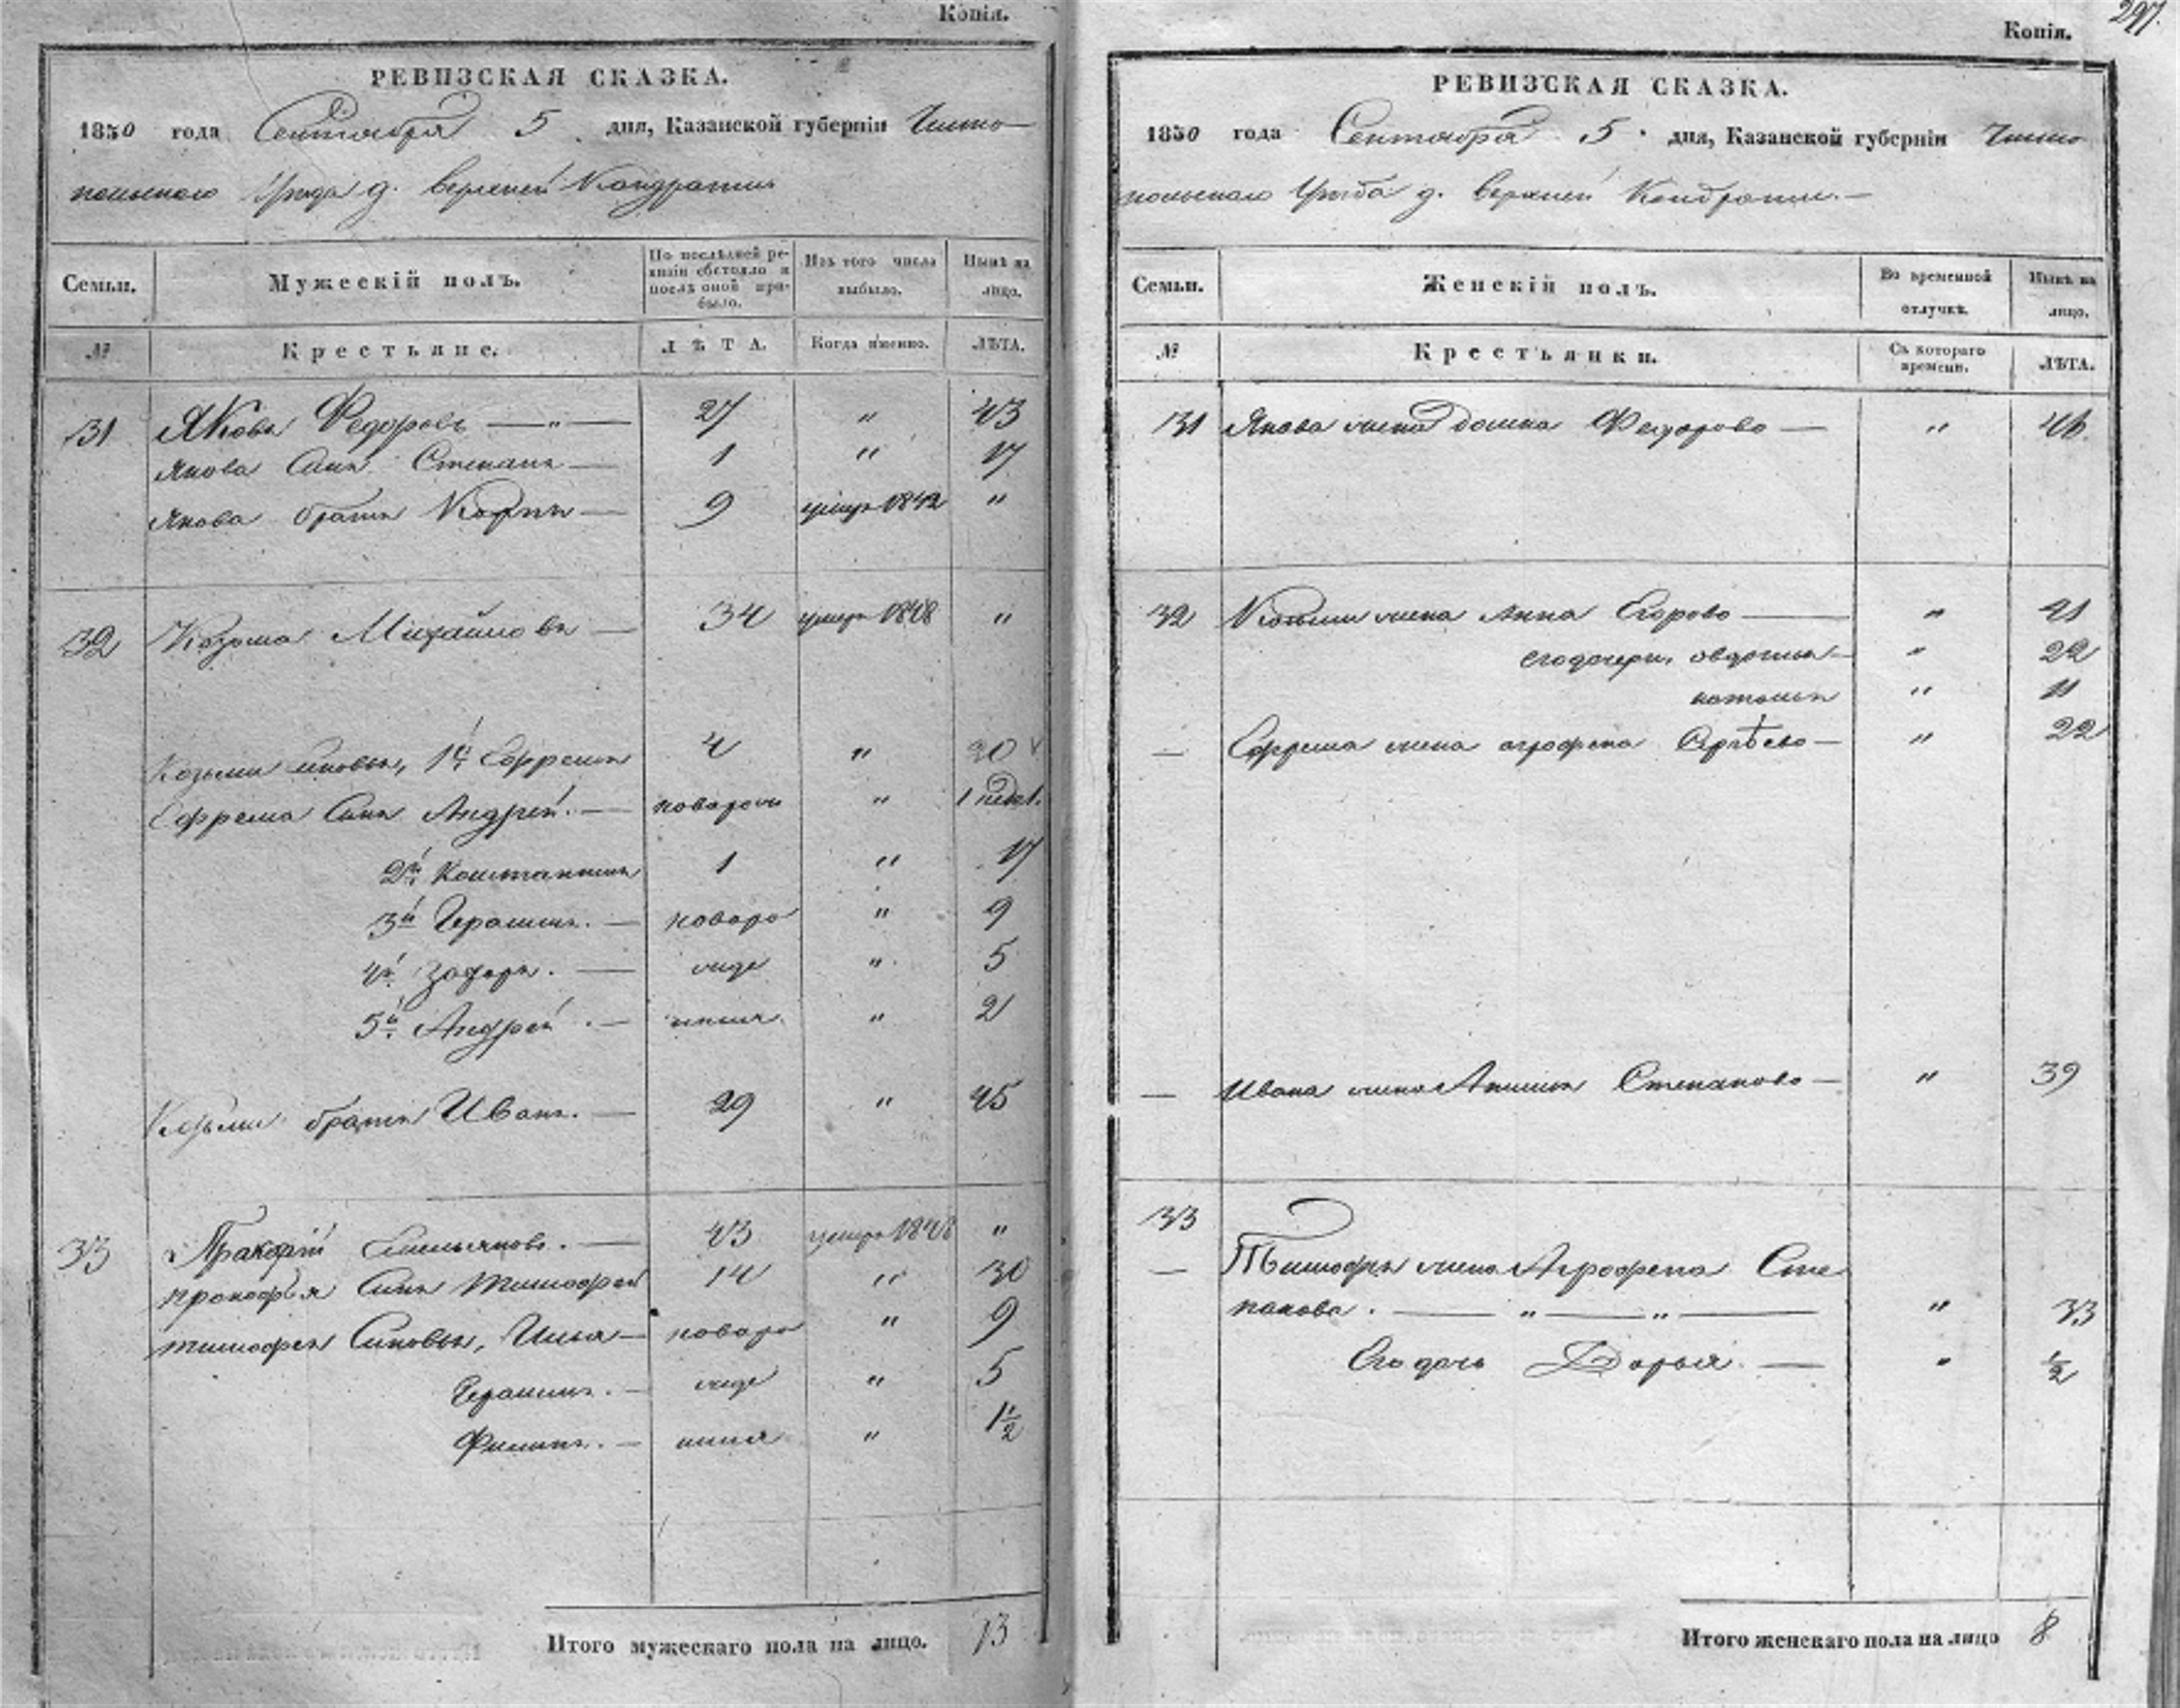 Копія.
РЕВИЗСКАЯ СКАЗКА.
1850 года Сентября 5 дня, Казанской губерніи Чисто
польского Уезда д. верхней Кондраты
Семьи. Мужескій полъ. По послѣдней ре- Изъ того числа Нынѣ на
визіи состояло и выбыло. лицо.
послѣ оной при-
было.
№ Крестьяне. ЛѢТА. Когда именно. ЛѢТА.
31 Яковъ Федоровъ — " — 27 " 43
Якова Сынъ Степанъ — 1 " 17
Якова братъ Карпъ — 9 умеръ 1842 "
32 Козма Михайловъ — 34 умеръ 1848 "
Козьмы сыновья, 1й Ефремъ 4 " 20
Ефрема Сынъ Андрей. — новорож " 1 недел.
2й Константинъ 1 " 17
3й Герасимъ. — новоро " 9
4й Захаръ. — жде " 5
5й Андрей. — нныя. " 2
Козьмы братъ Иванъ. — 29 " 45
33 Пракофій Емельяновъ. — 43 умеръ 1848 "
прокофья Сынъ тимофей 14 " 30
тимофея Сыновья, Илья — новоро " 9
Герасимъ. — жде " 5
Филипъ. — нныя " 1½
Итого мужескаго пола на лицо. 13
297.
Копія.
РЕВИЗСКАЯ СКАЗКА.
1850 года Сентября 5 дня, Казанской губерніи Чисто
польского Уезда д. верхней Кондраты. —
Семьи. Женскій полъ. Во временной Нынѣ на
отлучкѣ. лицо.
№ Крестьянки. Съ котораго ЛѢТА.
времени.
31 Якова жена домна Федорова — "
32 Козьмы жена Анна Егорова — " 41
его дочери, овдотья — " 22
наталья " 11
— Ефрема жена агрофена — " 22
— Ивана жена Степанова — " 39
33
— Тимофея жена Агрофена Сте
панова. — " — " — " 33
Его дочь Дарья. — " ½
Итого женскаго пола на лицо 8